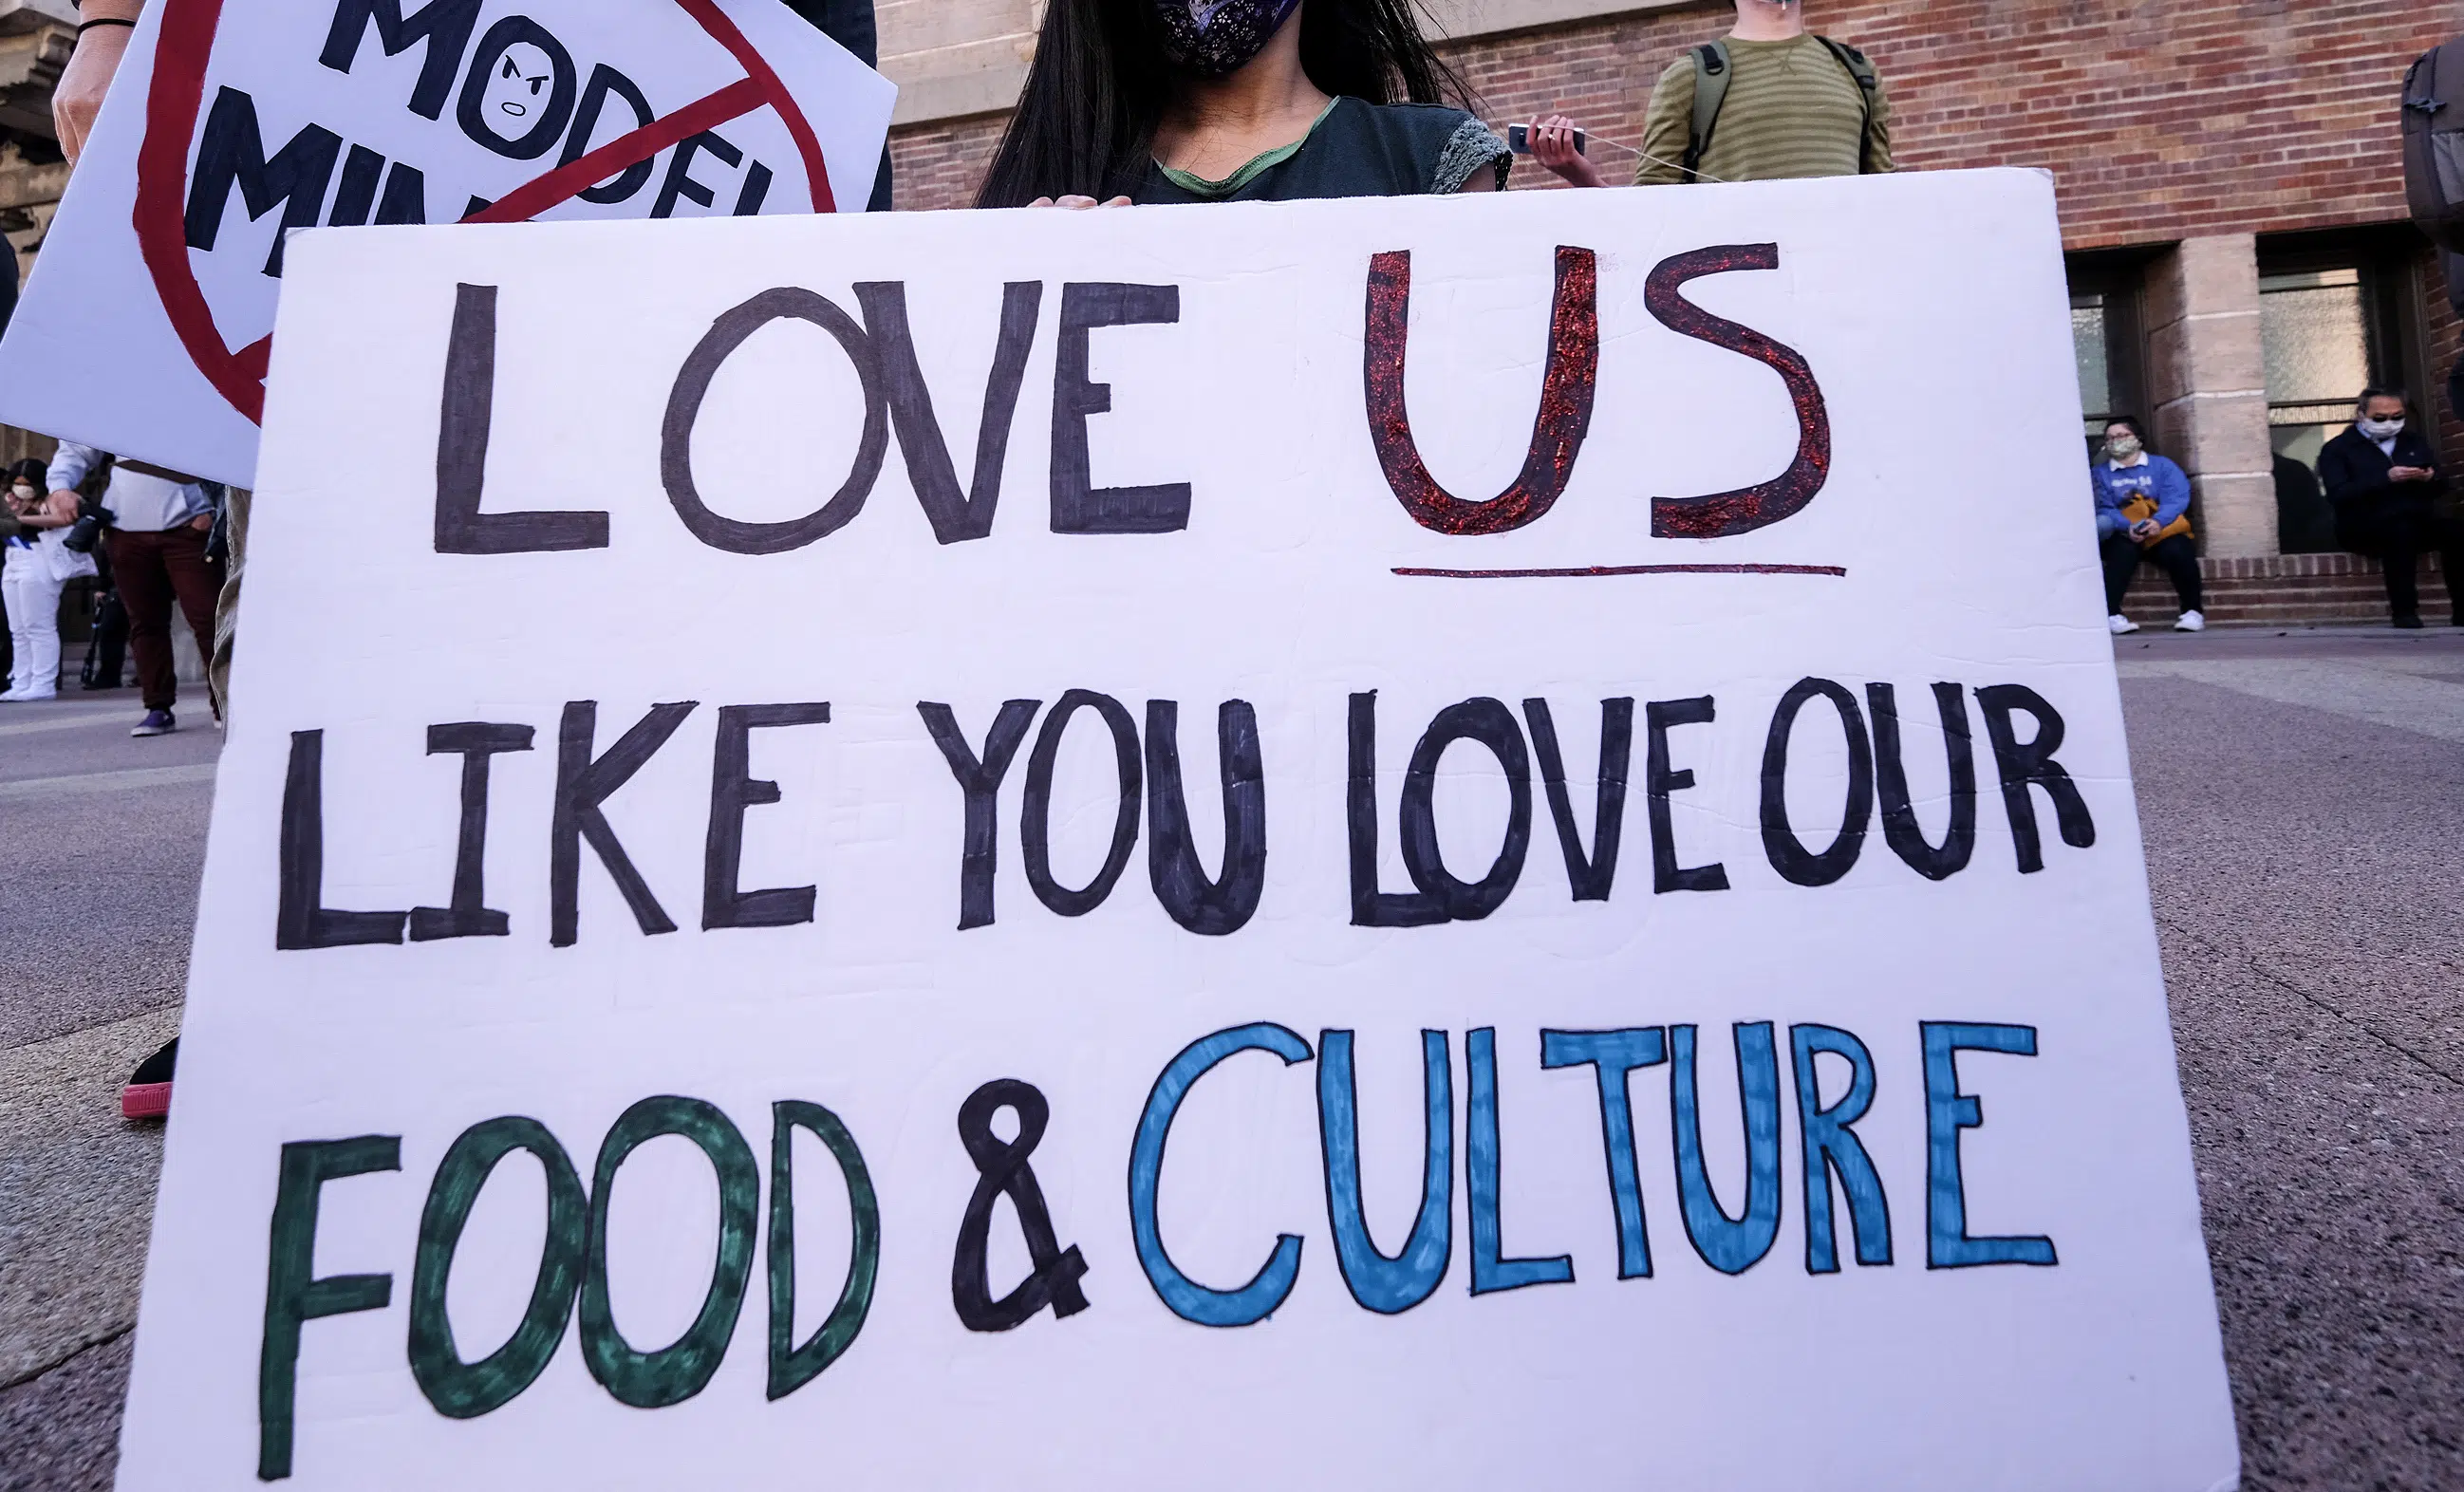 MODEL
LOVE US
LIKE YOU LOVE OUR
FOOD & CULTURE